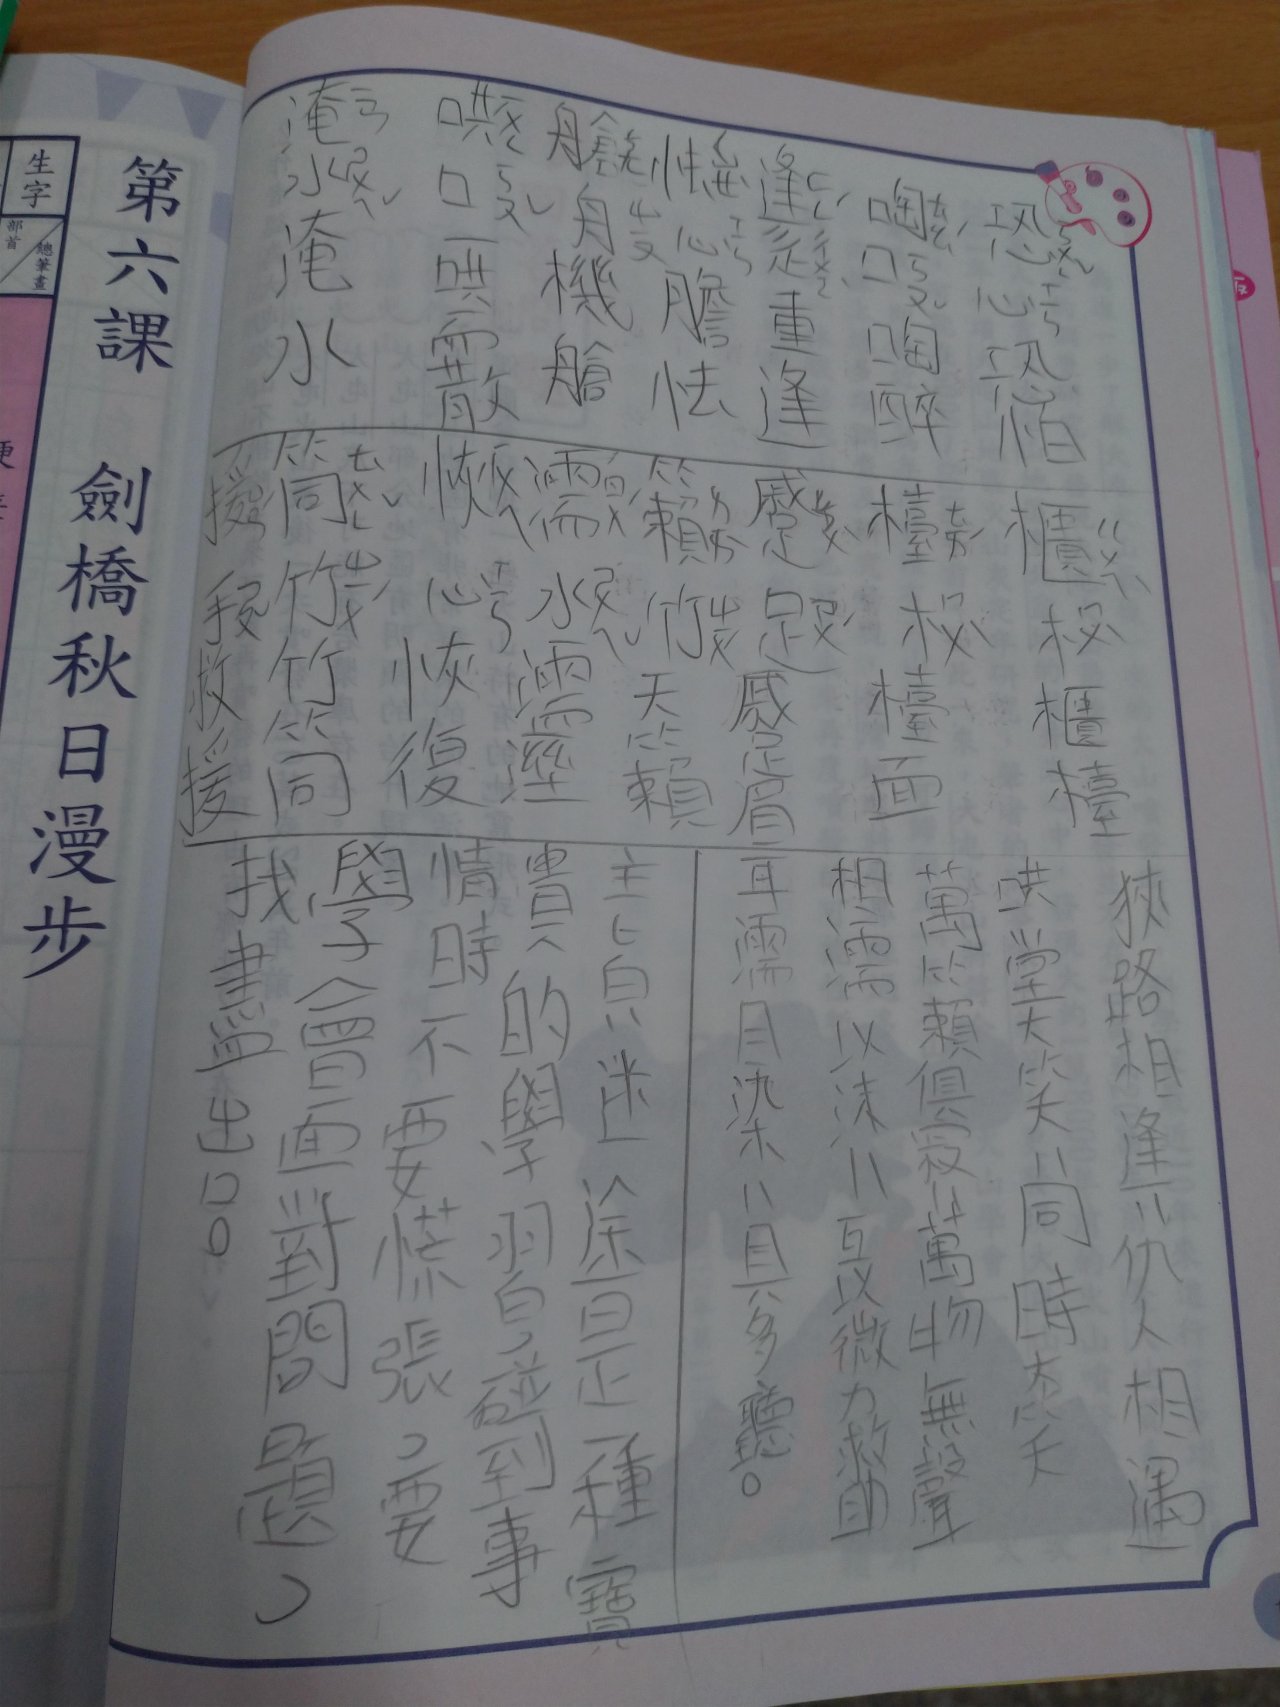 恐心恐怕
啕口啕醉
逢辵重逢
怯心膽怯
艙舟機艙
哄口哄散
淹水淹水
櫃木櫃檯
檯木檯面
蹙足蹙眉
籟竹天籟
濡水濡溼
恢心恢復
筒竹竹筒
援手救援
狹路相逢:仇人相遇
哄堂大笑:同時大笑
萬籟俱寂:萬物無聲
相濡以沫:互以微力救助
耳濡目染:見多聽。
主旨:迷途是一種寶
貴的學習,碰到事
情時不要慌張,要
學會面對問題,
找盡出口。
第六課 劍橋秋日漫步
生字
部首
總筆畫